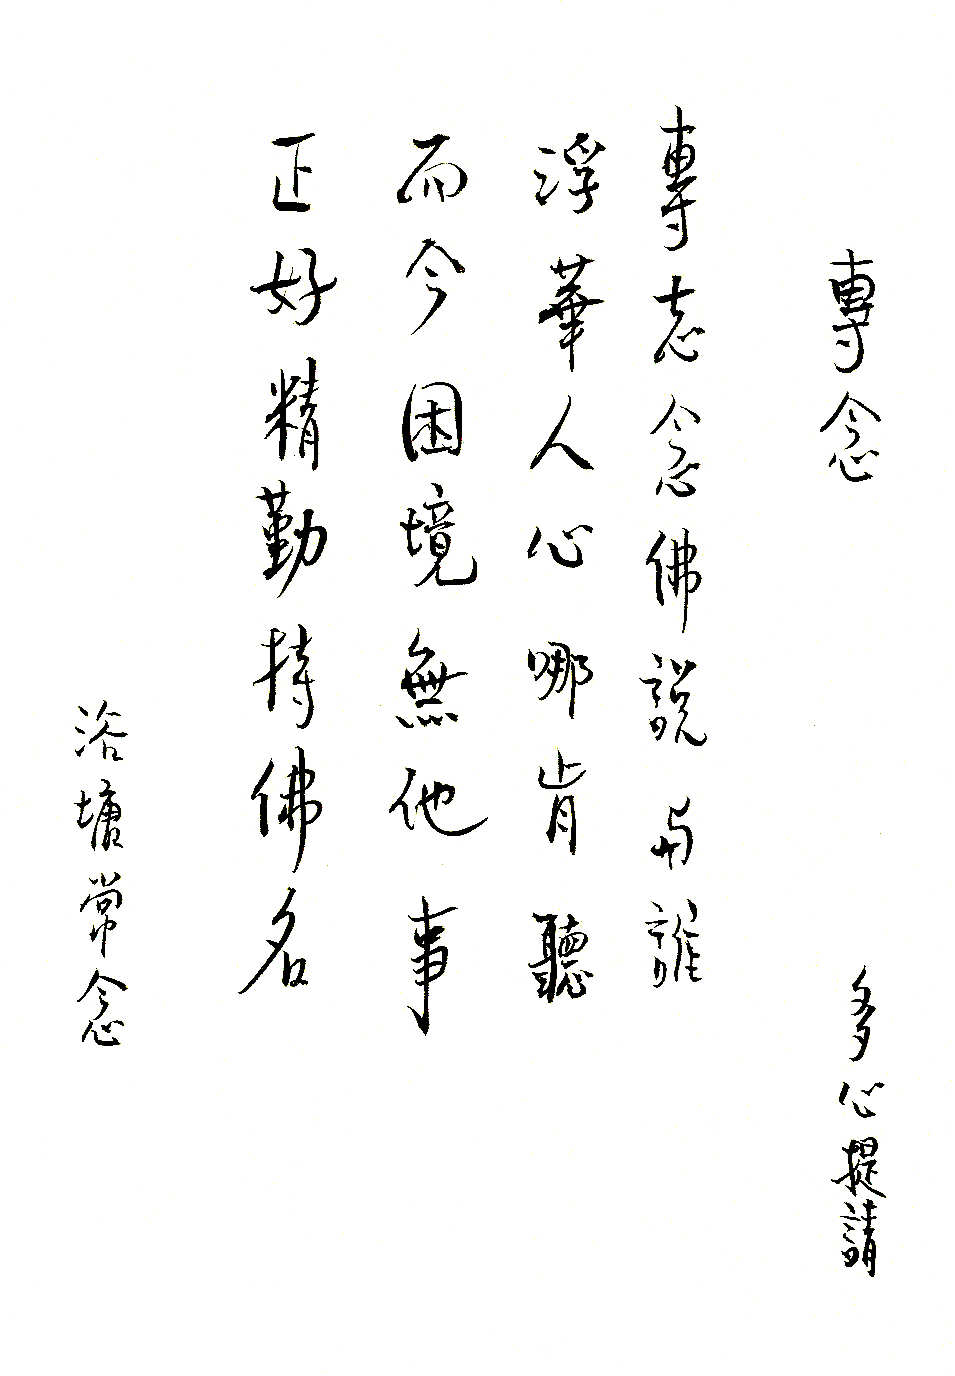 專念 多心提請
專志念佛說与誰
浮華人心哪肯聽
而今困境無他事
正好精勤持佛名
浴墉常念